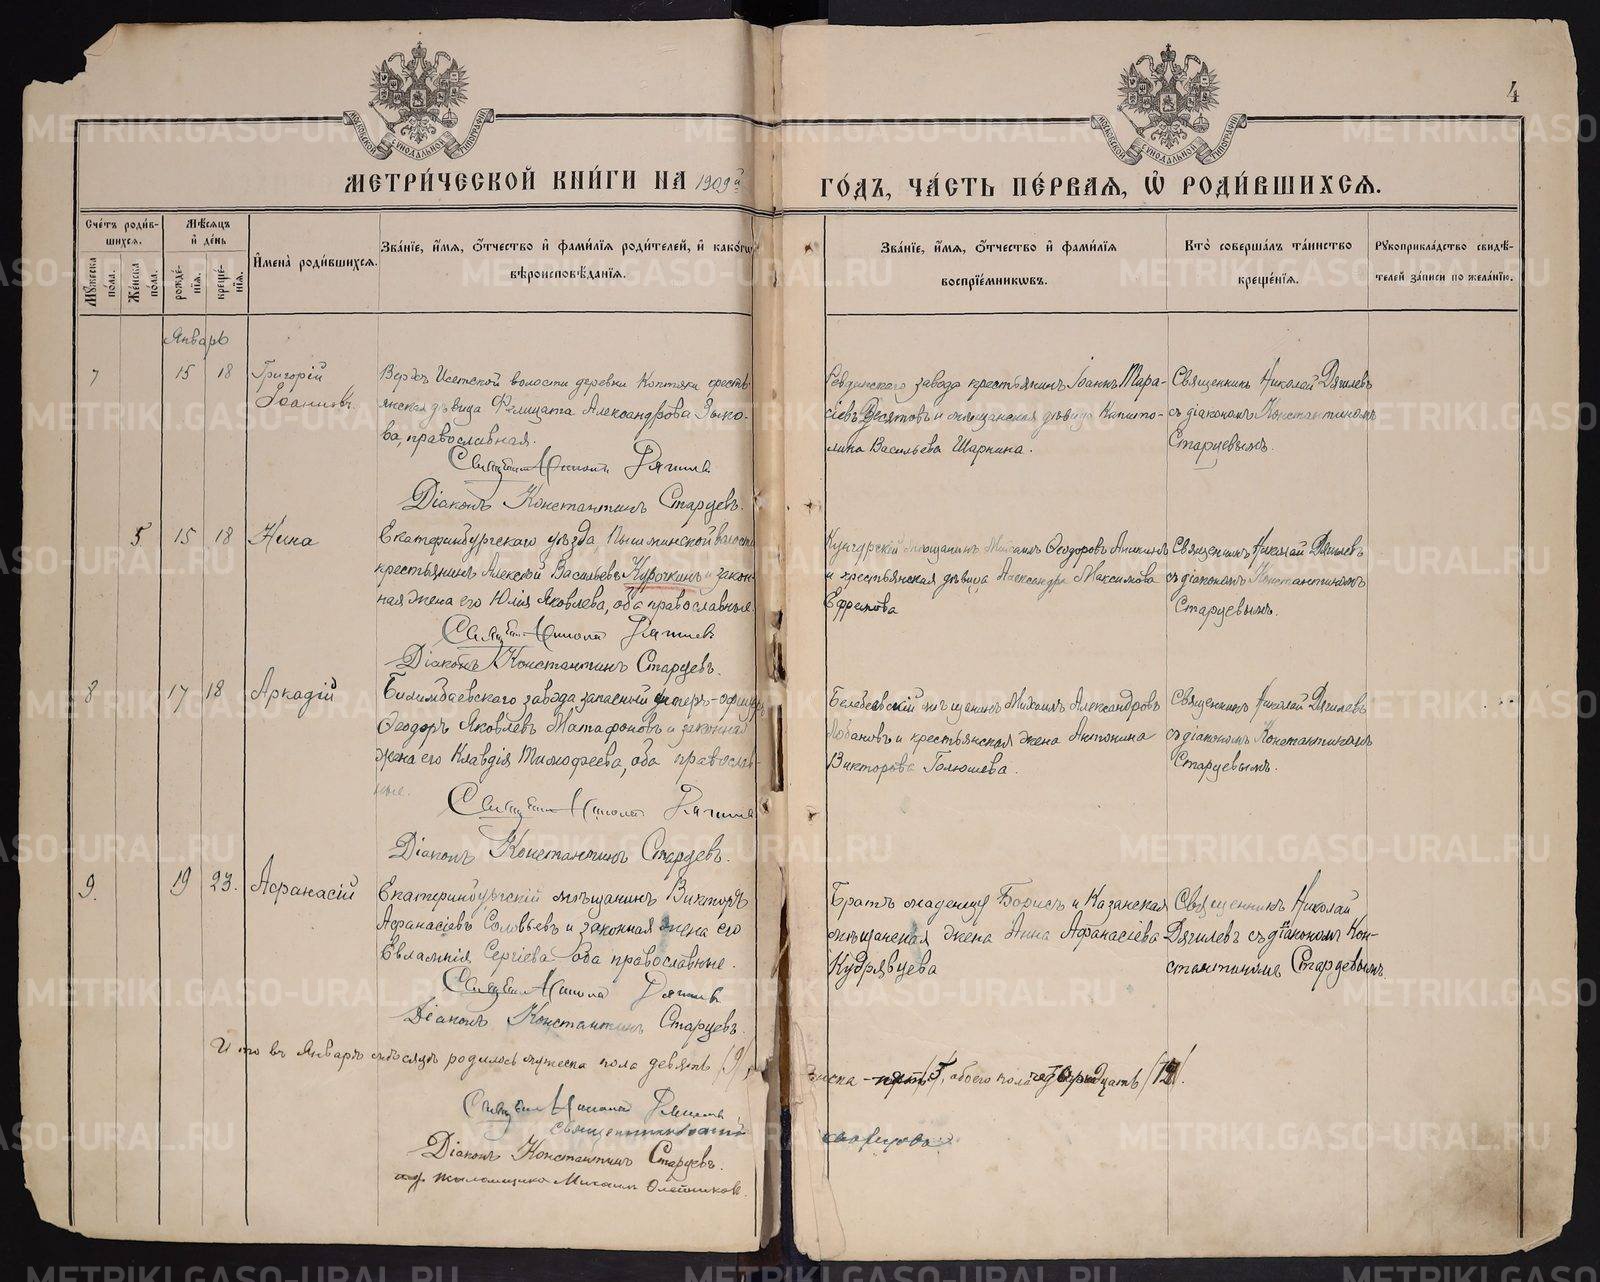 4
МОСКОВСКОЙ СѴНОДАЛЬНОЙ ТИПОГРАФІИ
МОСКОВСКОЙ СѴНОДАЛЬНОЙ ТИПОГРАФІИ
МЕТРИ́ЧЕСКОЙ КНИ́ГИ НА 1909й
ГО́ДЪ, ЧА́СТЬ ПЕ́РВАЯ, Ѡ РОДИ́ВШИХСЯ.
Сче́тъ роди́в-
шихся.
Мѣ́сяцъ
и де́нь
Му́жеска по́ла.
Же́нска по́ла.
рожде́-
нія.
креще́-
нія.
И́мена роди́вшихся.
Зва́ніе, и́мя, о́тчество и фами́лія роди́телей, и како́гѡ
вѣроисповѣ́данія.
Зва́ніе, и́мя, о́тчество и фами́лія
воспріе́мникѡвъ.
Кто̀ соверша́лъ та́инство
креще́нія.
Рукоприкла́дство свидѣ́-
телей за́писи по жела́нію.
Январь
7 15 18 Григорій
Іоанновъ.
Верхъ Исетской волости деревни Коптяки кресть-
янская дѣвица Фелицата Александрова Зыко-
ва, православная.
Священникъ Николай Дягилевъ
Діаконъ Константинъ Старцевъ.
Ревдинскаго завода крестьянинъ Іоаннъ Тара-
сіевъ Десятовъ и мѣщанская дѣвица Капито-
лина Васильева Шаркина.
Священникъ Николай Дягилевъ
съ діакономъ Константиномъ
Старцевымъ.
5 15 18 Нина
Екатеринбургскаго уѣзда, Пышминской волости
крестьянинъ Алексѣй Васильевъ Курочкинъ и закон-
ная жена его Юлія Яковлева, оба православные.
Священникъ Николай Дягилевъ
Діаконъ Константинъ Старцевъ.
Кунгурскій мѣщанинъ Михаилъ Ѳеодоровъ Аникинъ
и крестьянская дѣвица Александра Максимова
Ефремова
Священникъ Николай Дягилевъ
съ діакономъ Константиномъ
Старцевымъ.
8 17 18 Аркадій
Билимбаевскаго завода запасный унтеръ-офицеръ
Ѳеодоръ Яковлевъ Матафоновъ и законная
жена его Клавдія Тимофеева, оба православ-
ные.
Священникъ Николай Дягилевъ
Діаконъ Константинъ Старцевъ.
Белебеевскій мѣщанинъ Михаилъ Александровъ
Лобановъ и крестьянская жена Антонина
Викторова Голюшева.
Священникъ Николай Дягилевъ
съ діакономъ Константиномъ
Старцевымъ.
9. 19 23. Афанасій
Екатеринбургскій мѣщанинъ Викторъ
Афанасіевъ Соловьевъ и законная жена его
Евлампія Сергіева, оба православные.
Священникъ Николай Дягилевъ
Діаконъ Константинъ Старцевъ.
Братъ младенца Борисъ и Казанская
мѣщанская жена Анна Афанасіева
Кудрявцева
Священникъ Николай
Дягилевъ съ діакономъ Кон-
стантиномъ Старцевымъ
Итого въ Январѣ мѣсяцѣ родилось мужеска пола девять /9/,
женска - пять /5/, обоего пола
Священникъ Николай Дягилевъ
Діаконъ Константинъ Старцевъ.
псаломщика Михаилъ Олейниковъ.
METRIKI.GASO-URAL.RU